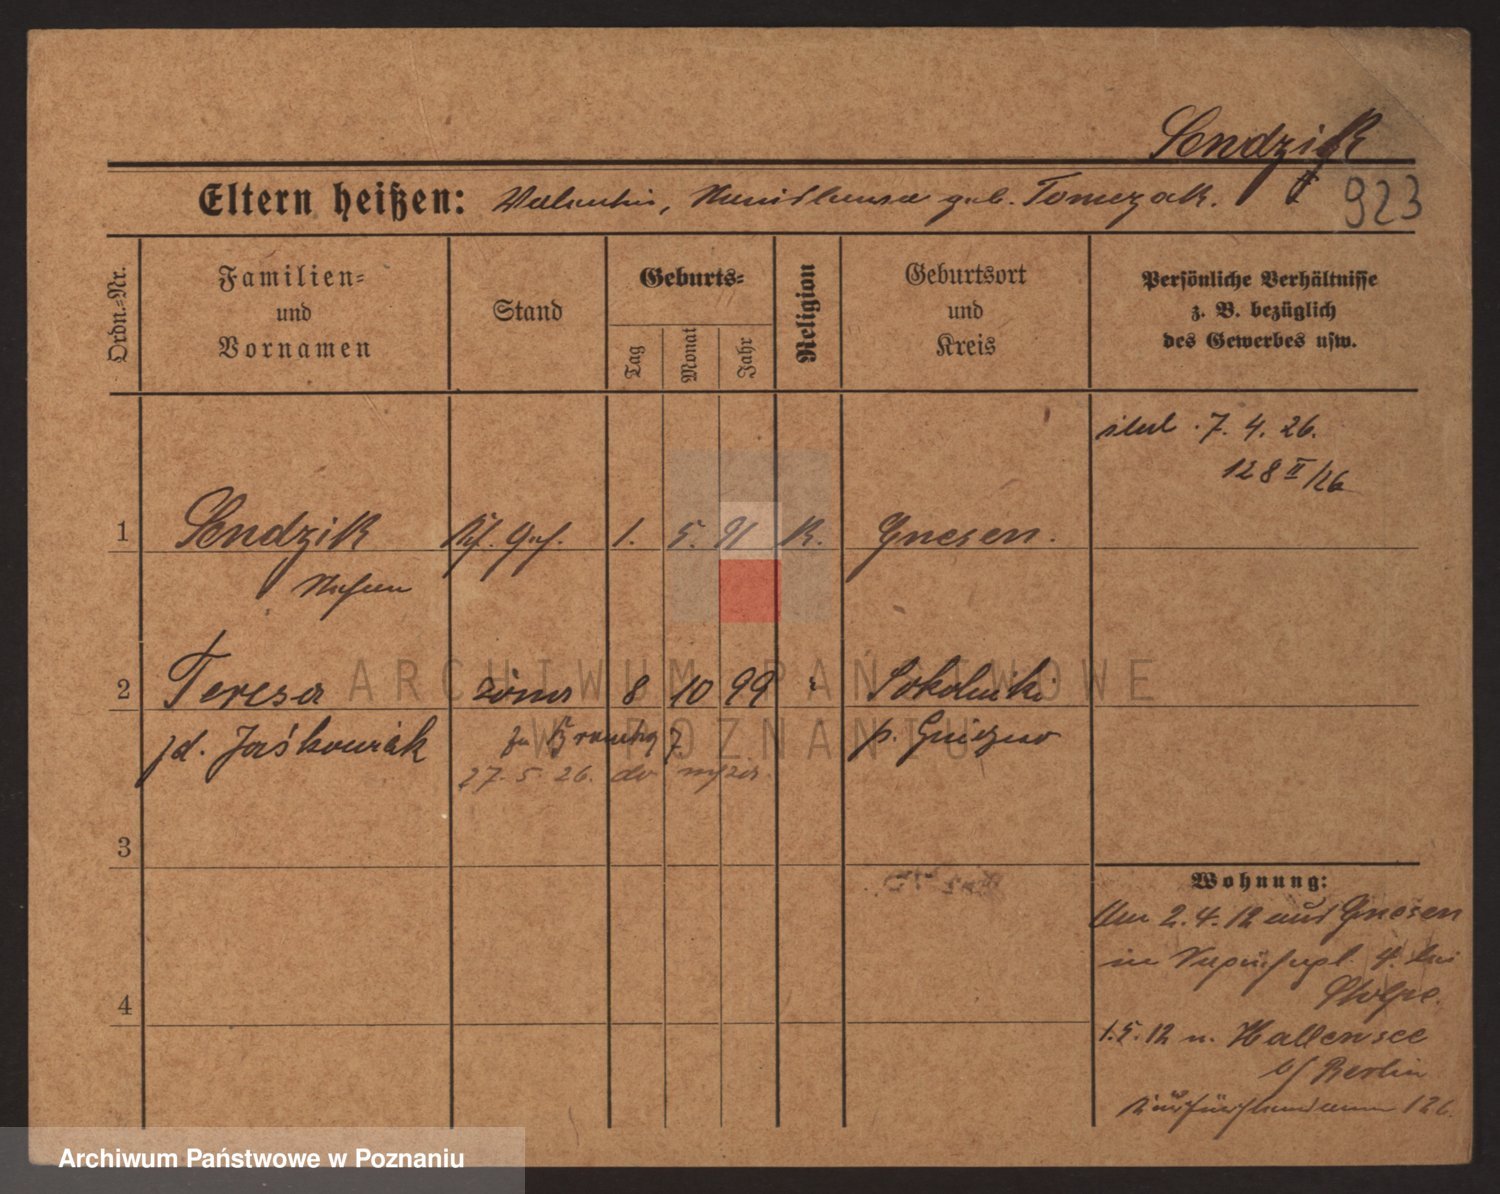 Sendzik
Eltern heißen: Valentin, Stanislawa geb. Tomczak.
923
Ordn.-Nr.
Familien-
und
Vornamen
Stand
Geburts-
Tag
Monat
Jahr
Religion
Geburtsort
und
Kreis
Persönliche Verhältnisse
z. B. bezüglich
des Gewerbes usw.
7. 4. 26.
128 II/26
1 Sendzik 1. 5. 91 K. Gnesen.
Stefan
2 Teresa żona 8 10 99 Sokolniki
jd. Jaśkowiak p. Gniezno
27. 5. 26. do
3
4
Wohnung:
Am 2. 4. 12 aus Gnesen
in 4. bei
Stolpe.
1. 5. 12 n. Hallensee
b/ Berlin
Kurfürstendamm 126.
ARCHIWUM PAŃSTWOWE
W POZNANIU
Archiwum Państwowe w Poznaniu